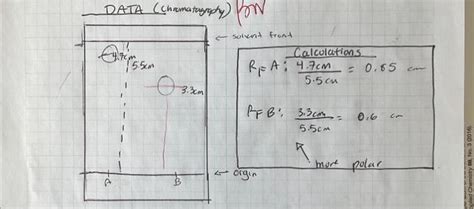 DATA (Chromatography)
solvent front
4.7cm
5.5cm
3.3cm
A
B
orgin
Calculations
RF A: 4.7cm / 5.5cm = 0.85 cm
RF B: 3.3cm / 5.5cm = 0.6 cm
more polar
Chemistry 88, No. 3 (2016)